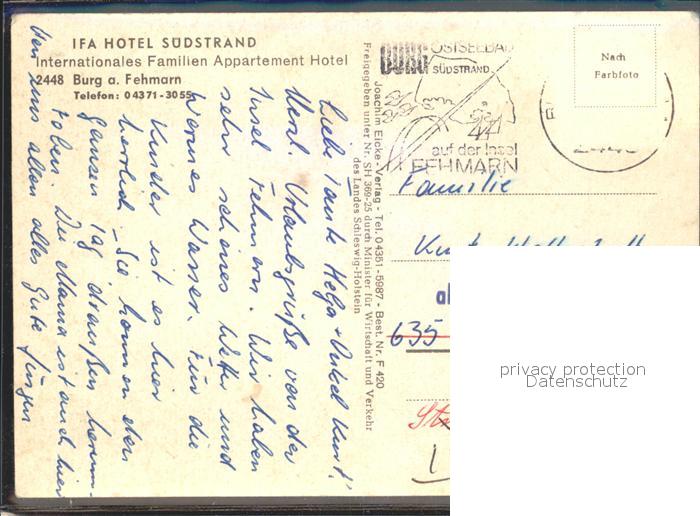 IFA HOTEL SÜDSTRAND
Internationales Familien Appartement Hotel
2448 Burg a. Fehmarn
Telefon: 04371-3055
Liebe Tante Helga + Onkel Kurt!
Herzl. Urlaubsgrüße von der
Insel Fehmarn. Wir haben
sehr schönes Wetter und
warmes Wasser. Für die
Kinder ist es hier
herrlich. Sie können den
ganzen Tag draußen herum-
toben. Die Mama ist auch hier
von uns allen alles Gute Jürgen
Joachim Eicke-Verlag - Tel. 04351-5987 - Best. Nr. F 420
Freigegeben unter Nr. SH 369-25 durch Minister für Wirtschaft und Verkehr
des Landes Schleswig-Holstein
BURG OSTSEEBAD
SÜDSTRAND
auf der Insel
FEHMARN
Nach
Farbfoto
Familie
Kurt
635
privacy protection
Datenschutz